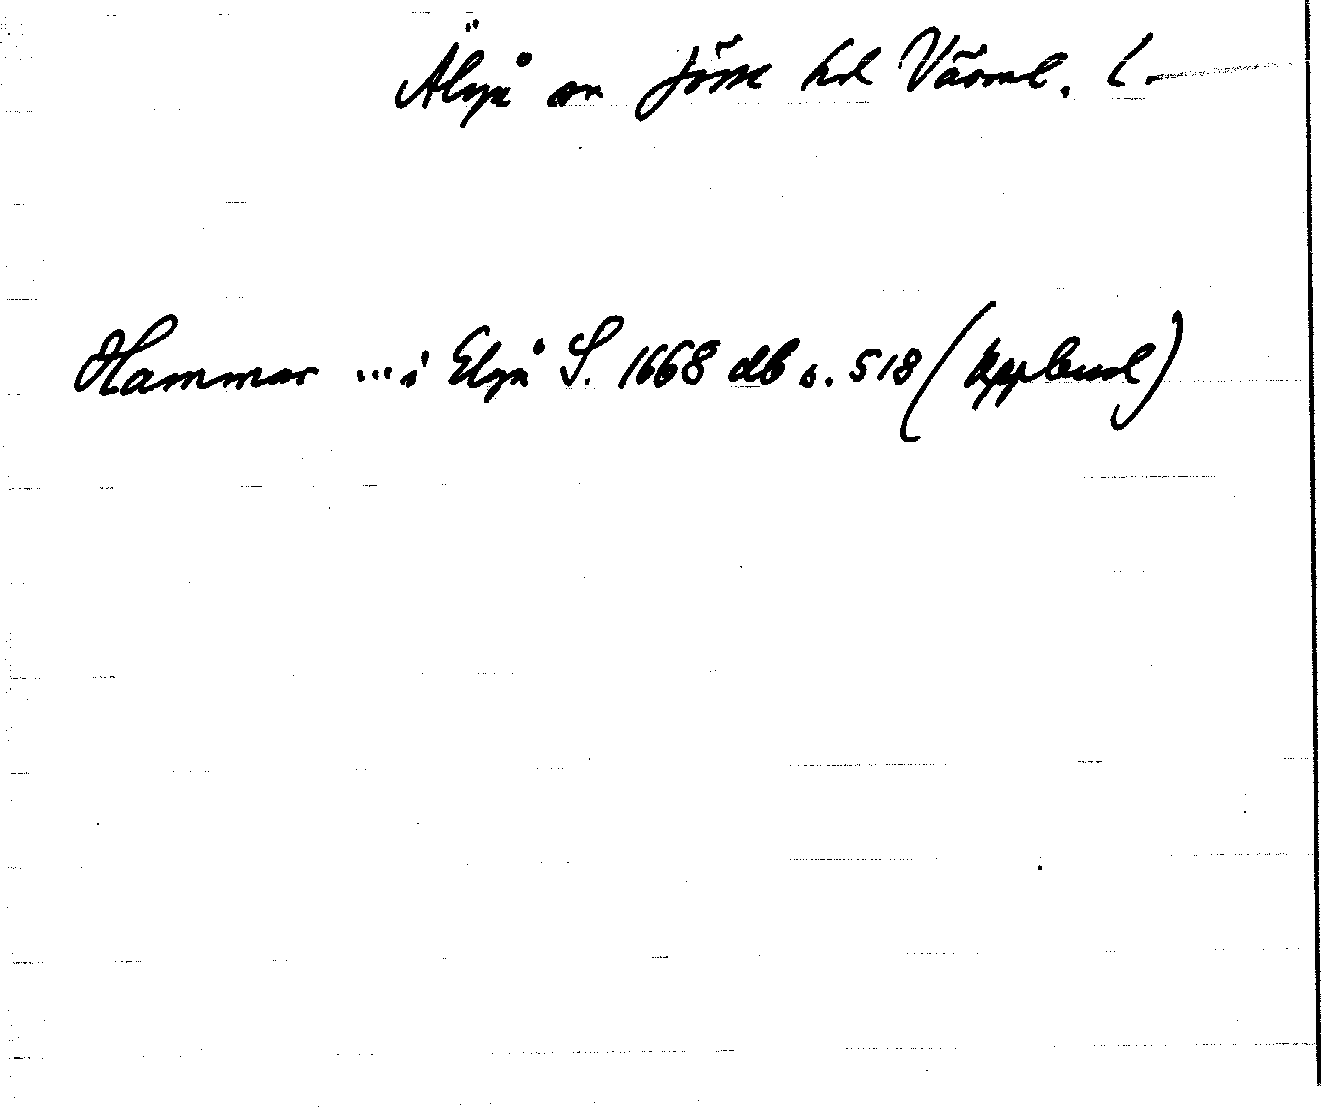 Älgå sn Jösse hd Värml. l.
Hammar ... i Elgå S. 1668 db s. 518 (